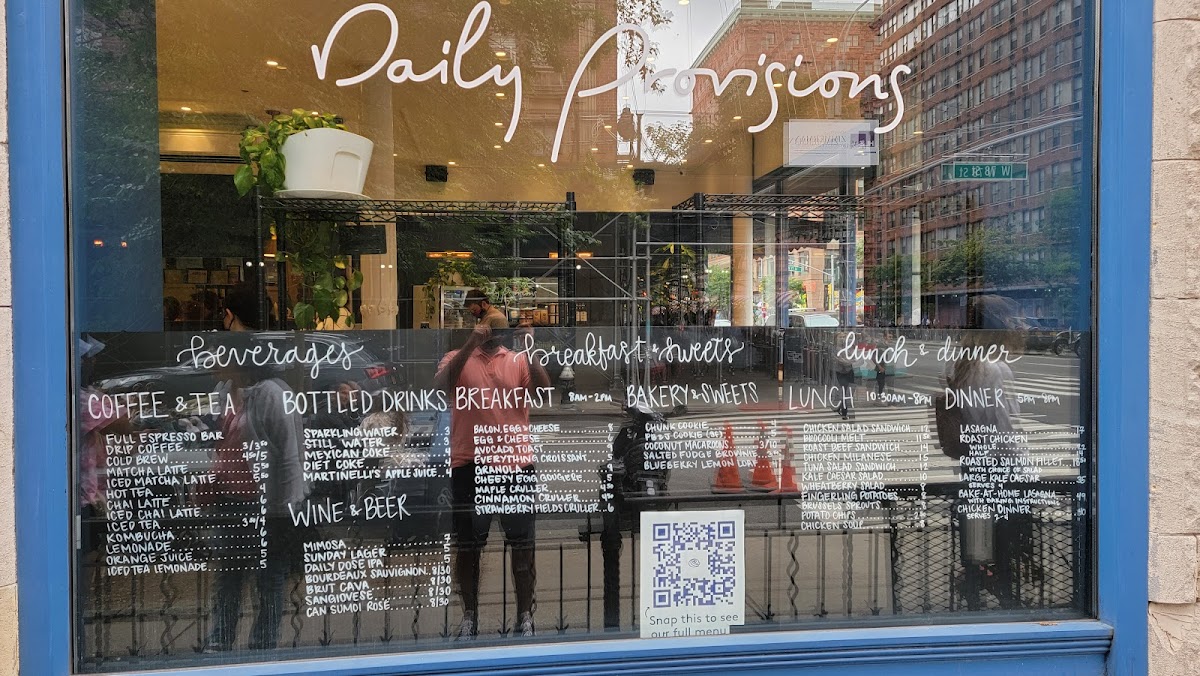 Daily Provisions
beverages
breakfast & sweets
lunch & dinner
COFFEE & TEA
FULL ESPRESSO BAR
DRIP COFFEE
COLD BREW
MATCHA LATTE
ICED MATCHA LATTE
HOT TEA
CHAI LATTE
ICED CHAI LATTE
ICED TEA
KOMBUCHA
LEMONADE
ORANGE JUICE
ICED TEA LEMONADE
BOTTLED DRINKS
SPARKLING WATER
STILL WATER
MEXICAN COKE
DIET COKE
MARTINELLI'S APPLE JUICE
WINE & BEER
MIMOSA
SUNDAY LAGER
DAILY DOSE IPA
BOURDEAUX SAUVIGNON 8/30
BRUT CAVA 8/30
SANGIOVESE 8/30
CAN SUMOI ROSÉ 8/30
BREAKFAST 8AM-2PM
BACON, EGG & CHEESE
EGG & CHEESE
AVOCADO TOAST
EVERYTHING CROISSANT
GRANOLA
CHEESY EGG GOUGÈRE
MAPLE CRULLER
CINNAMON CRULLER
STRAWBERRY FIELDS CRULLER
BAKERY & SWEETS
CHUNK COOKIE
PB & J COOKIE (GF)
COCONUT MACAROONS
SALTED FUDGE BROWNIE
BLUEBERRY LEMON LOAF
LUNCH 10:30AM-8PM
CHICKEN SALAD SANDWICH
BROCCOLI MELT
ROAST BEEF SANDWICH
CHICKEN MILANESE
TUNA SALAD SANDWICH
KALE CAESAR SALAD
WHEATBERRY SALAD
FINGERLING POTATOES
BRUSSELS SPROUTS
POTATO CHIPS
CHICKEN SOUP
DINNER 5PM-8PM
LASAGNA
ROAST CHICKEN
WHOLE
HALF
ROASTED SALMON FILLET
WITH CHOICE OF SALAD
LARGE KALE CAESAR
SERVES 4
BAKE-AT-HOME LASAGNA
WITH BAKING INSTRUCTIONS
CHICKEN DINNER
SERVES 2-4
Snap this to see
our full menu
W 78 St